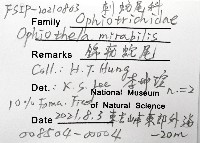 FSIP-10210803 刺蛇尾科
Family Ophiotrichidae
Ophiothela mirabilis
Remarks 錦疣蛇尾
Coll.: H. T. Hung
Det.: X. S. Lee 李坤瑄 n.=2
National Museum
10% Forma. Fixed of Natural Science
Date 2021.8.3
008504-00004 -20m